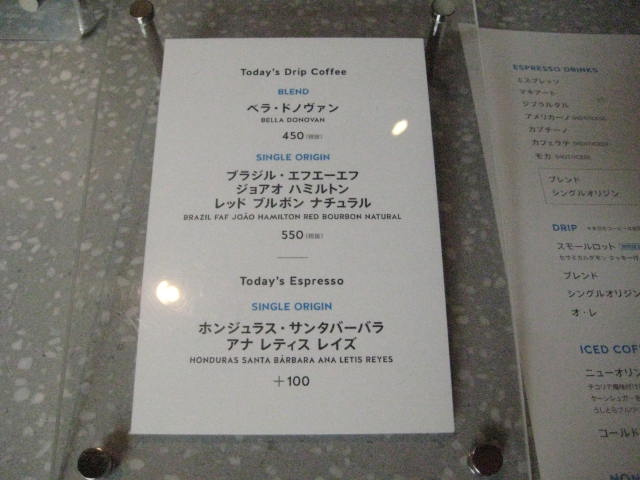 Today's Drip Coffee
BLEND
ベラ・ドノヴァン
BELLA DONOVAN
450(税抜)
SINGLE ORIGIN
ブラジル・エフエーエフ
ジョアオ ハミルトン
レッド ブルボン ナチュラル
BRAZIL FAF JOÃO HAMILTON RED BOURBON NATURAL
550(税抜)
Today's Espresso
SINGLE ORIGIN
ホンジュラス・サンタバーバラ
アナ レティス レイズ
HONDURAS SANTA BÁRBARA ANA LETIS REYES
+100
ESPRESSO DRINKS
エスプレッソ
マキアート
ジブラルタル
アメリカーノ HOT/ICED
カプチーノ
カフェラテ HOT/ICED
モカ HOT/ICED
ブレンド
シングルオリジン
DRIP
スモールロット
ブレンド
シングルオリジン
オ・レ
ICED COF
ニューオリン
コールド